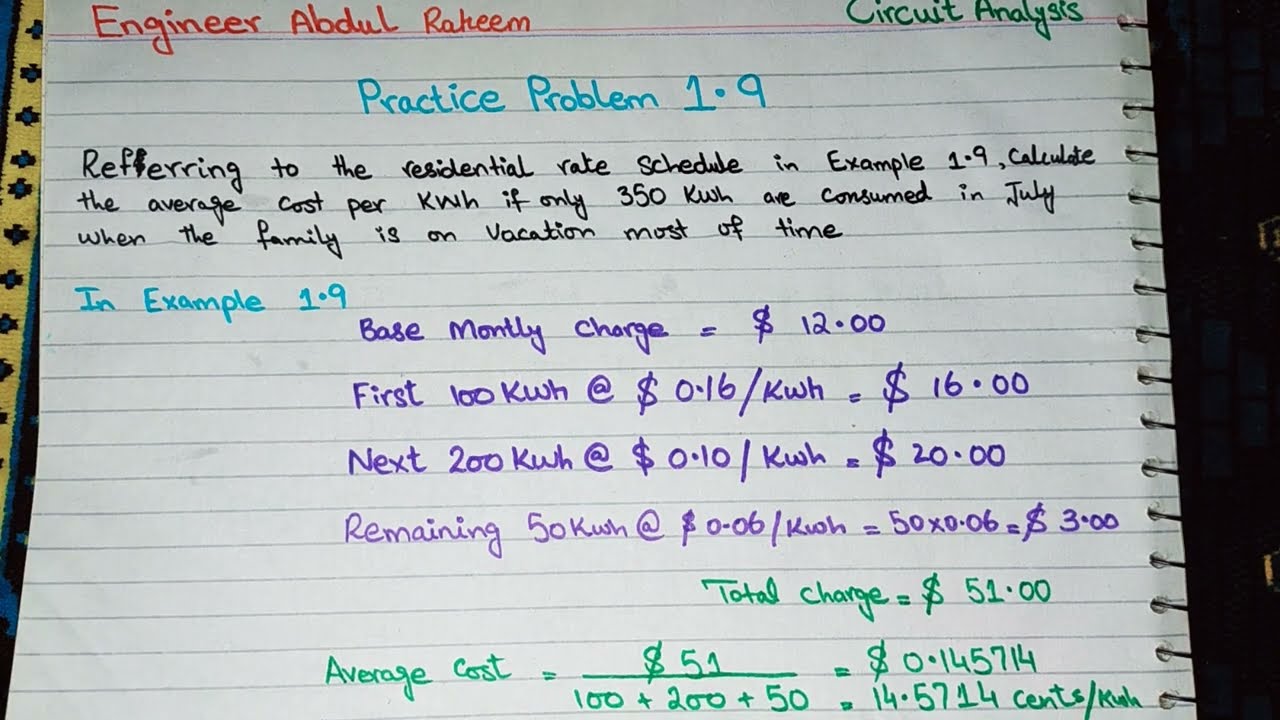 Engineer Abdul Raheem
Circuit Analysis
Practice Problem 1.9
Refferring to the residential rate schedule in Example 1.9, Calculate
the average cost per KWh if only 350 KWh are consumed in July
when the family is on Vacation most of time
In Example 1.9
Base Montly Charge = $ 12.00
First 100 KWh @ $ 0.16/KWh = $ 16.00
Next 200 KWh @ $ 0.10/KWh = $ 20.00
Remaining 50 KWh @ $ 0.06/KWh = 50x0.06 = $ 3.00
Total Charge = $ 51.00
Average Cost = $ 51 = $ 0.145714
100 + 200 + 50 = 14.5714 cents/KWh